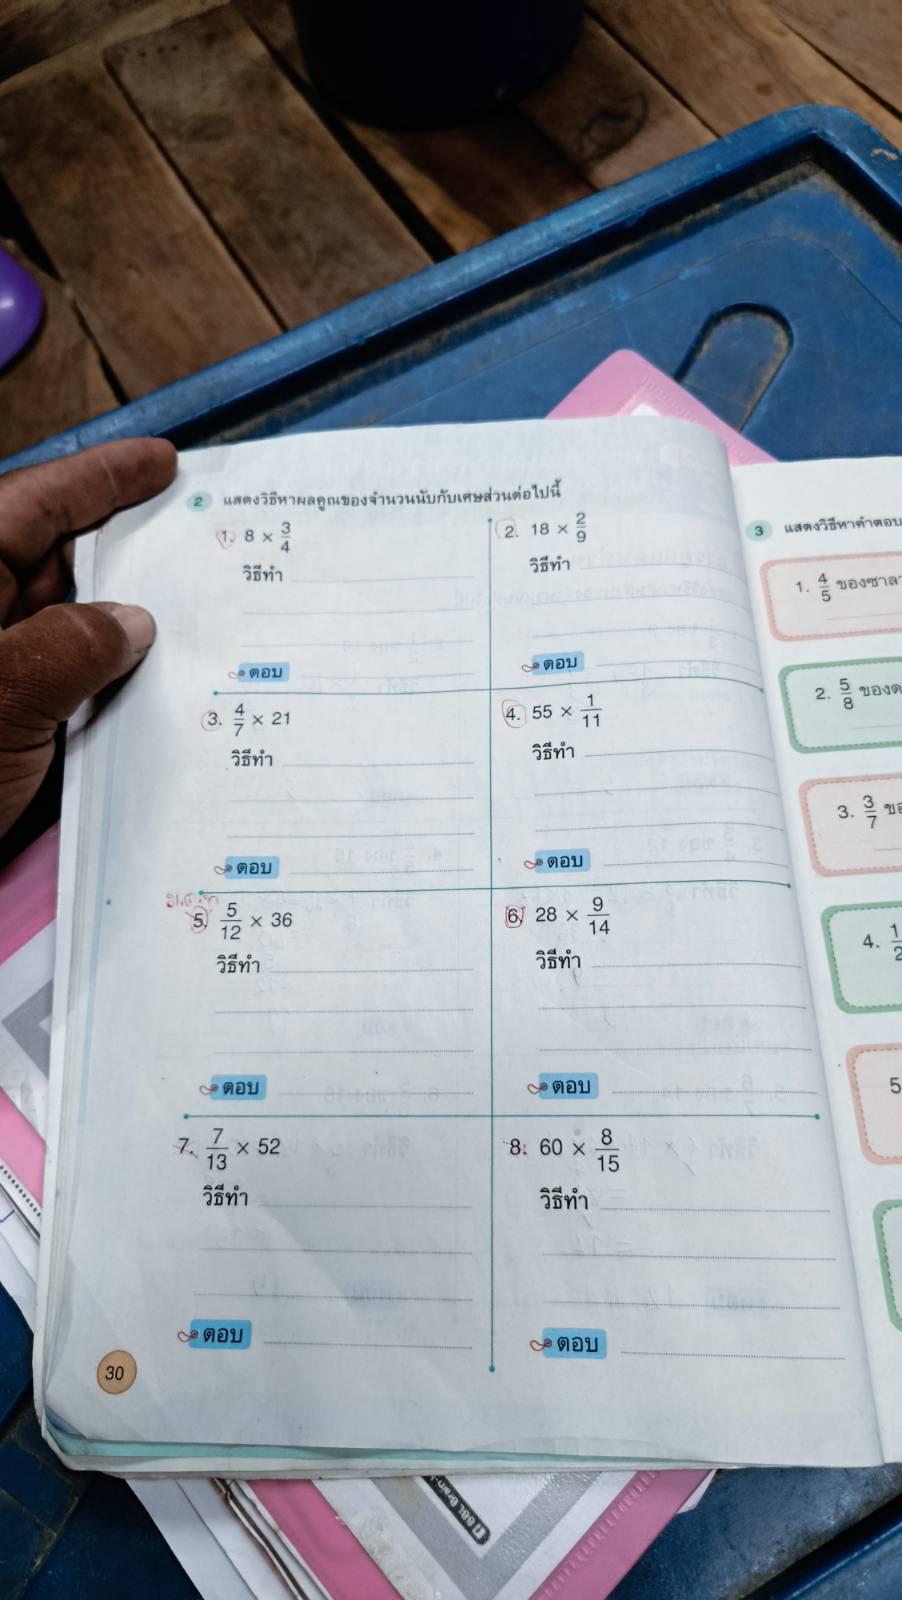 2 แสดงวิธีหาผลคูณของจำนวนนับกับเศษส่วนต่อไปนี้
1. 8 × 3/4
2. 18 × 2/9
วิธีทำ
วิธีทำ
ตอบ
ตอบ
3. 4/7 × 21
4. 55 × 1/11
วิธีทำ
วิธีทำ
ตอบ
ตอบ
5. 5/12 × 36
6. 28 × 9/14
วิธีทำ
วิธีทำ
ตอบ
ตอบ
7. 7/13 × 52
8. 60 × 8/15
วิธีทำ
วิธีทำ
ตอบ
ตอบ
30
3 แสดงวิธีหาคำตอบ
1. 4/5 ของซาลา
2. 5/8 ของ
3. 3/7 ข
4. 1/2
5